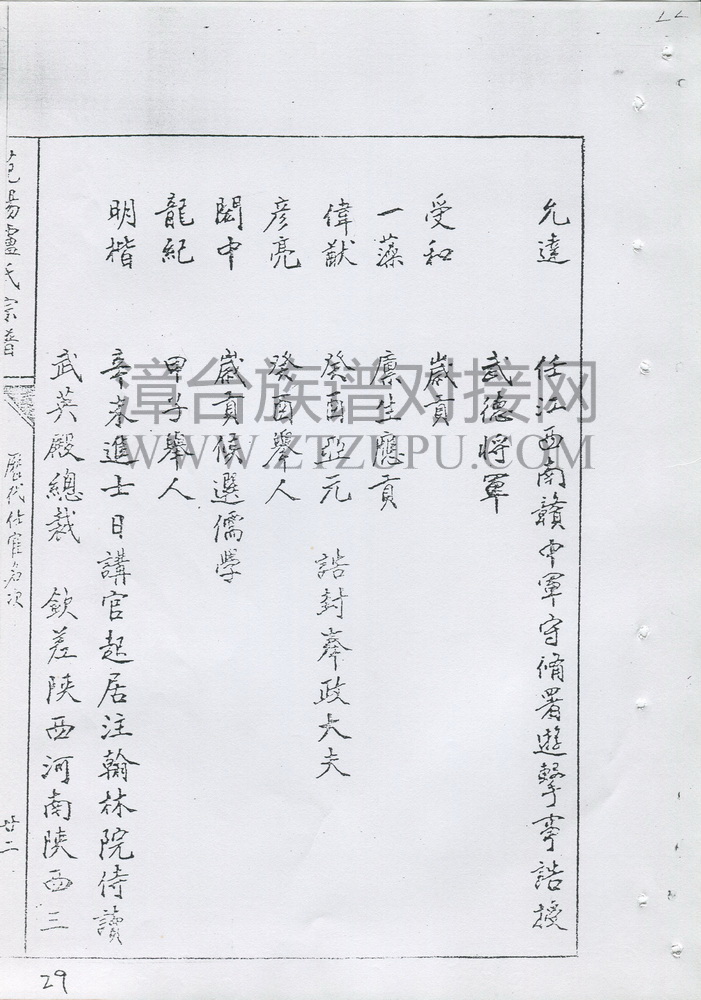 允達 任江西南贛中軍守俻署遊擊事誥授
武德將軍
受和 歲貢
一藻 廪生應貢
偉猷 癸酉亞元 誥封奉政大夫
彦亮 癸酉舉人
閣中 歲貢候選儒学
龍紀 甲子舉人
明楷 辛未進士日講官起居注翰林院侍讀
武英殿總裁 欽差陝西河南陝西三
范陽盧氏宗普
歷代仕宦名次
廿二
29
漳台族谱对接网
WWW.ZTZUPU.COM